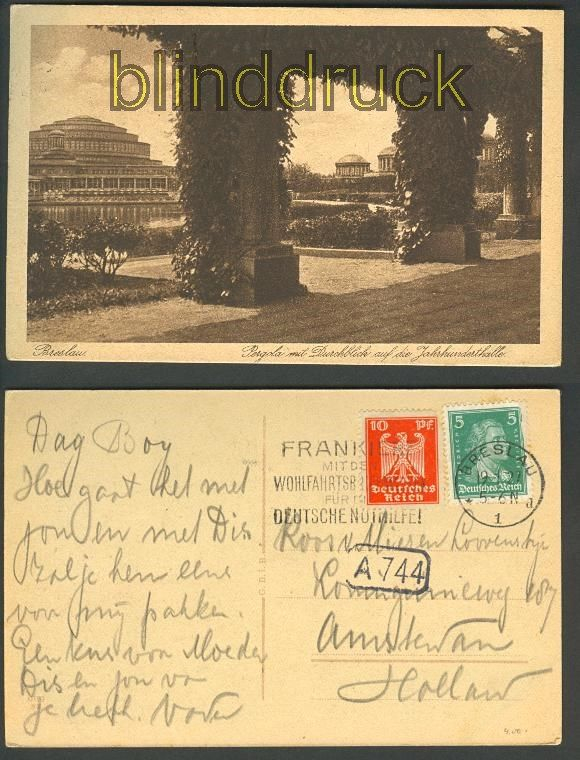 blinddruck
Breslau.
Pergola mit Durchblick auf die Jahrhunderthalle.
Dag Boy
Hoe gaat het met
jou en met Dis
Zal je hem eens
voor mij pakken.
Een kus voor Moeder
Dis en jou van
je liefh. Vader
FRANKI
MIT DE
WOHLFAHRTSB
FÜR
DEUTSCHE NOTHILFE!
10 Pf.
Deutsches
Reich
5 5
Deutsches Reich
BRESLAU
5-6 N
d
1
A 744
Koos v.
Amsterdam
Holland
4,00